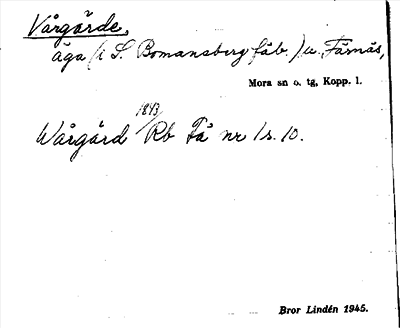 Vårgärde,
äga (i S. Bomansberg fäb.) u. Färnäs,
Mora sn o. tg, Kopp. l.
1843
Wårgärd Rb Få nr 1 s. 10.
Bror Lindén 1945.